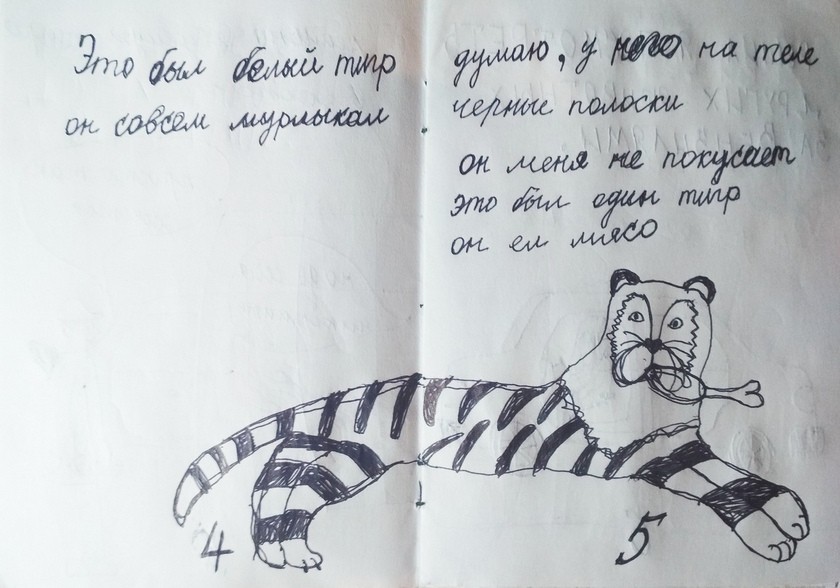 Это был белый тигр
он совсем мурлыкал
4
думаю, у него на теле
черные полоски
он меня не покусает
это был один тигр
он ел мясо
5